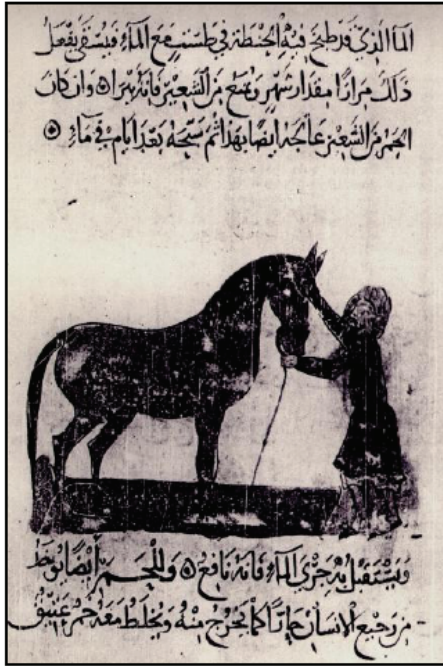 الما الذي قد طبخ فيه الحنطة في طست مع الماء فيسقى يفعل
ذلك مرارا مقدار شهر ويمنع من الشعير فانه يبرا ه وان كان
الحمر من الشعير عالجه ايضا بهذا ثم سبحه بعد ايام في ماء ه
ويستقبل به جري الماء فانه نافع ه وللحمر ايضا يوخذ
من رجيع الانسان حارا كما يخرج منه ويخلط معه خمر عتيق